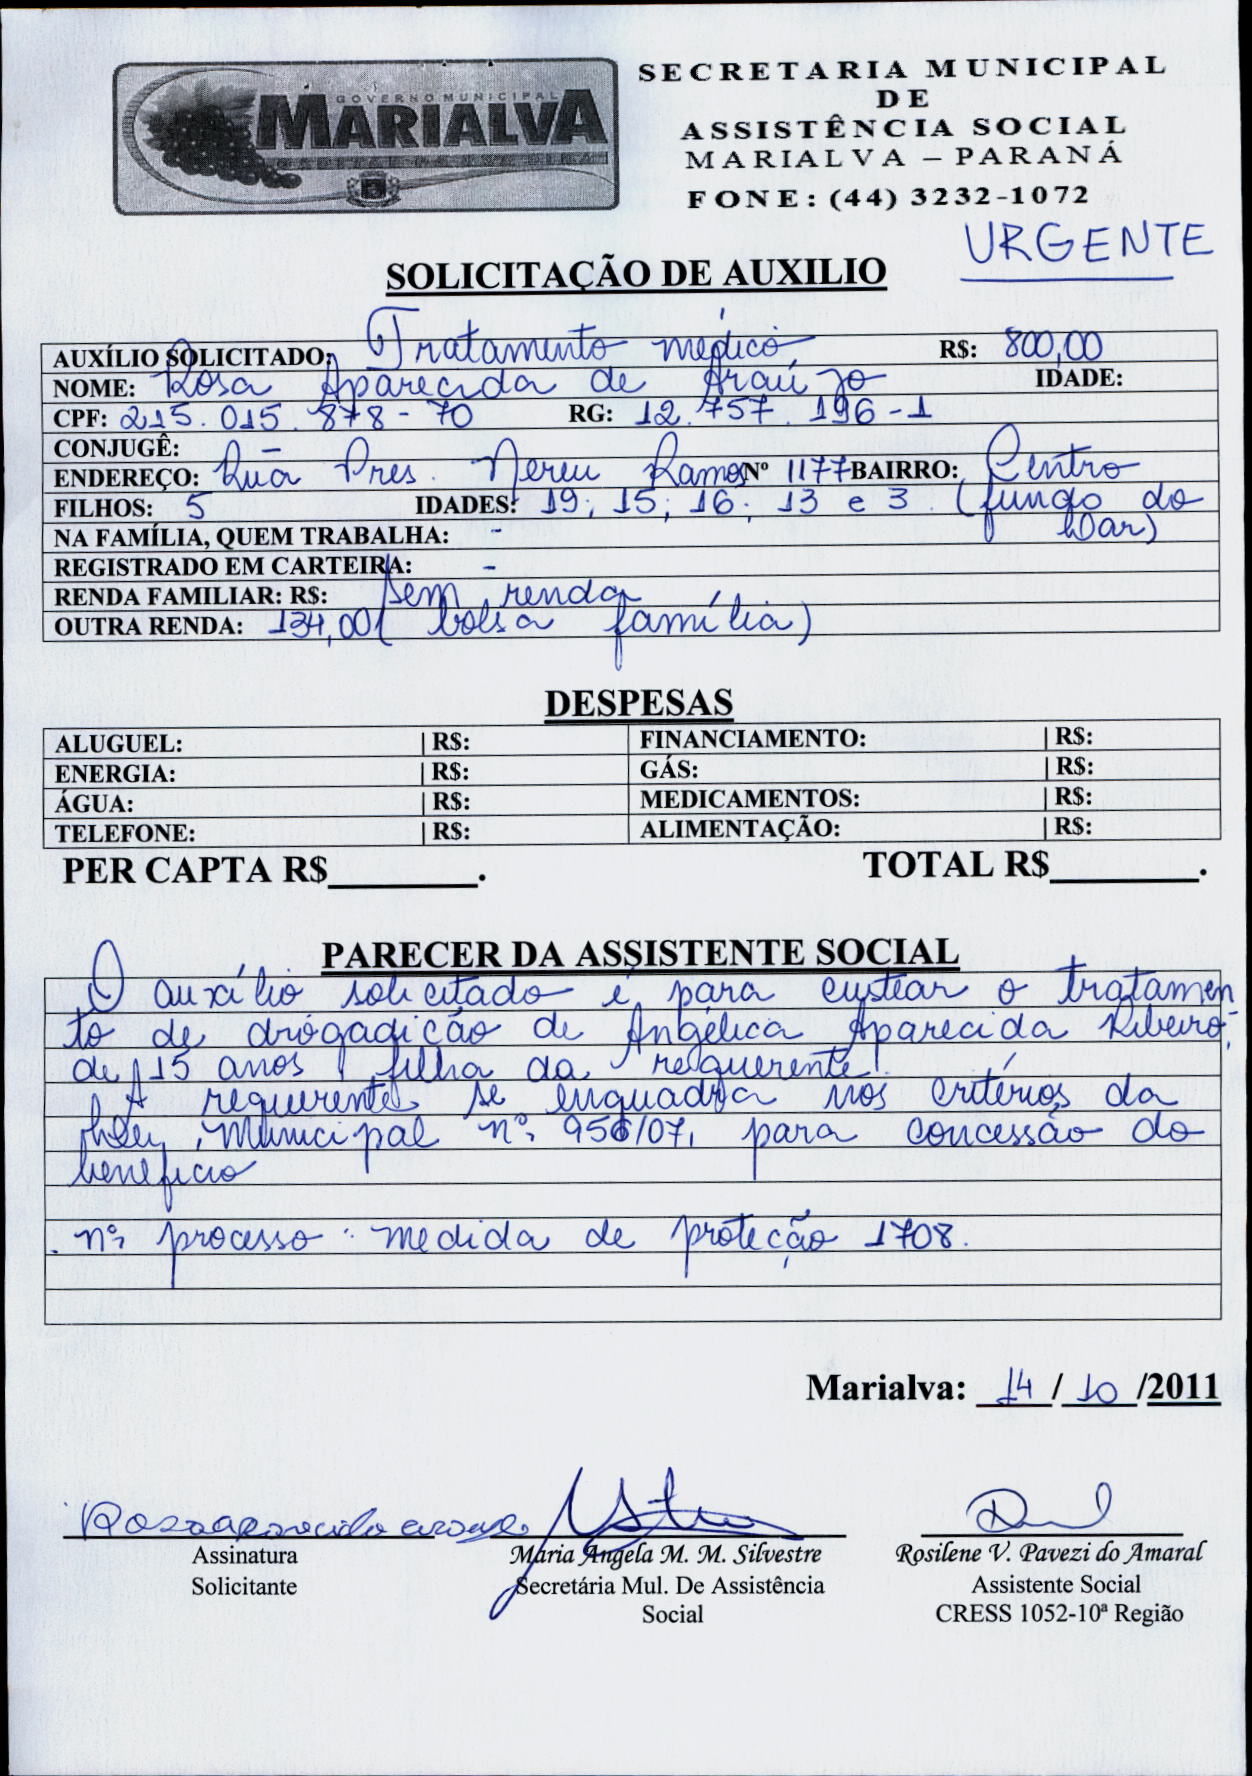 GOVERNO MUNICIPAL
MARIALVA
SECRETARIA MUNICIPAL
DE
ASSISTÊNCIA SOCIAL
MARIALVA – PARANÁ
FONE: (44) 3232-1072
URGENTE
SOLICITAÇÃO DE AUXILIO
AUXÍLIO SOLICITADO: Tratamento médico R$: 800,00
NOME: Rosa Aparecida de Araújo IDADE:
CPF: 215.015.878-70 RG: 12.757.196-1
CONJUGÊ: -
ENDEREÇO: Rua Pres. Nereu Ramos Nº 1177 BAIRRO: Centro
FILHOS: 5 IDADES: 19; 15; 16; 13 e 3. (fundo do
NA FAMÍLIA, QUEM TRABALHA: - bar)
REGISTRADO EM CARTEIRA: -
RENDA FAMILIAR: R$: sem renda
OUTRA RENDA: 134,00 (bolsa família)
DESPESAS
ALUGUEL: | R$: FINANCIAMENTO: | R$:
ENERGIA: | R$: GÁS: | R$:
ÁGUA: | R$: MEDICAMENTOS: | R$:
TELEFONE: | R$: ALIMENTAÇÃO: | R$:
PER CAPTA R$________. TOTAL R$________.
PARECER DA ASSISTENTE SOCIAL
O auxílio solicitado é para custear o tratamen
to de drogadição de Angélica Aparecida Ribeiro,
de 15 anos, filha da requerente.
A requerente se enquadra nos critérios da
Lei Municipal nº 956/07, para concessão do
benefício
. nº processo: medida de proteção 1708.
Marialva: 14/10/2011
Rosa aparecida araujo
Assinatura
Solicitante
Maria Angela M. M. Silvestre
Secretária Mul. De Assistência
Social
Rosilene V. Pavezi do Amaral
Assistente Social
CRESS 1052-10ª Região